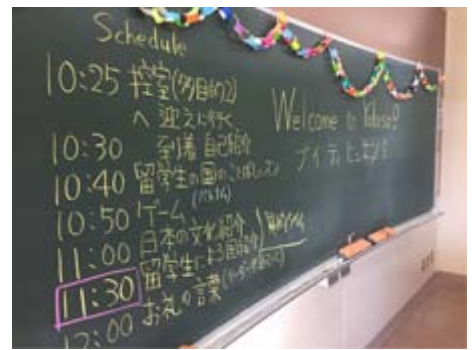 Schedule
10:25 控室(多目的2)
へ迎えに行く
10:30 到着 自己紹介
10:40 留学生の国のことばレッスン
10:50 ゲーム
11:00 日本の文化紹介
11:30 留学生による国紹介
12:00 お礼の言葉
Welcome to